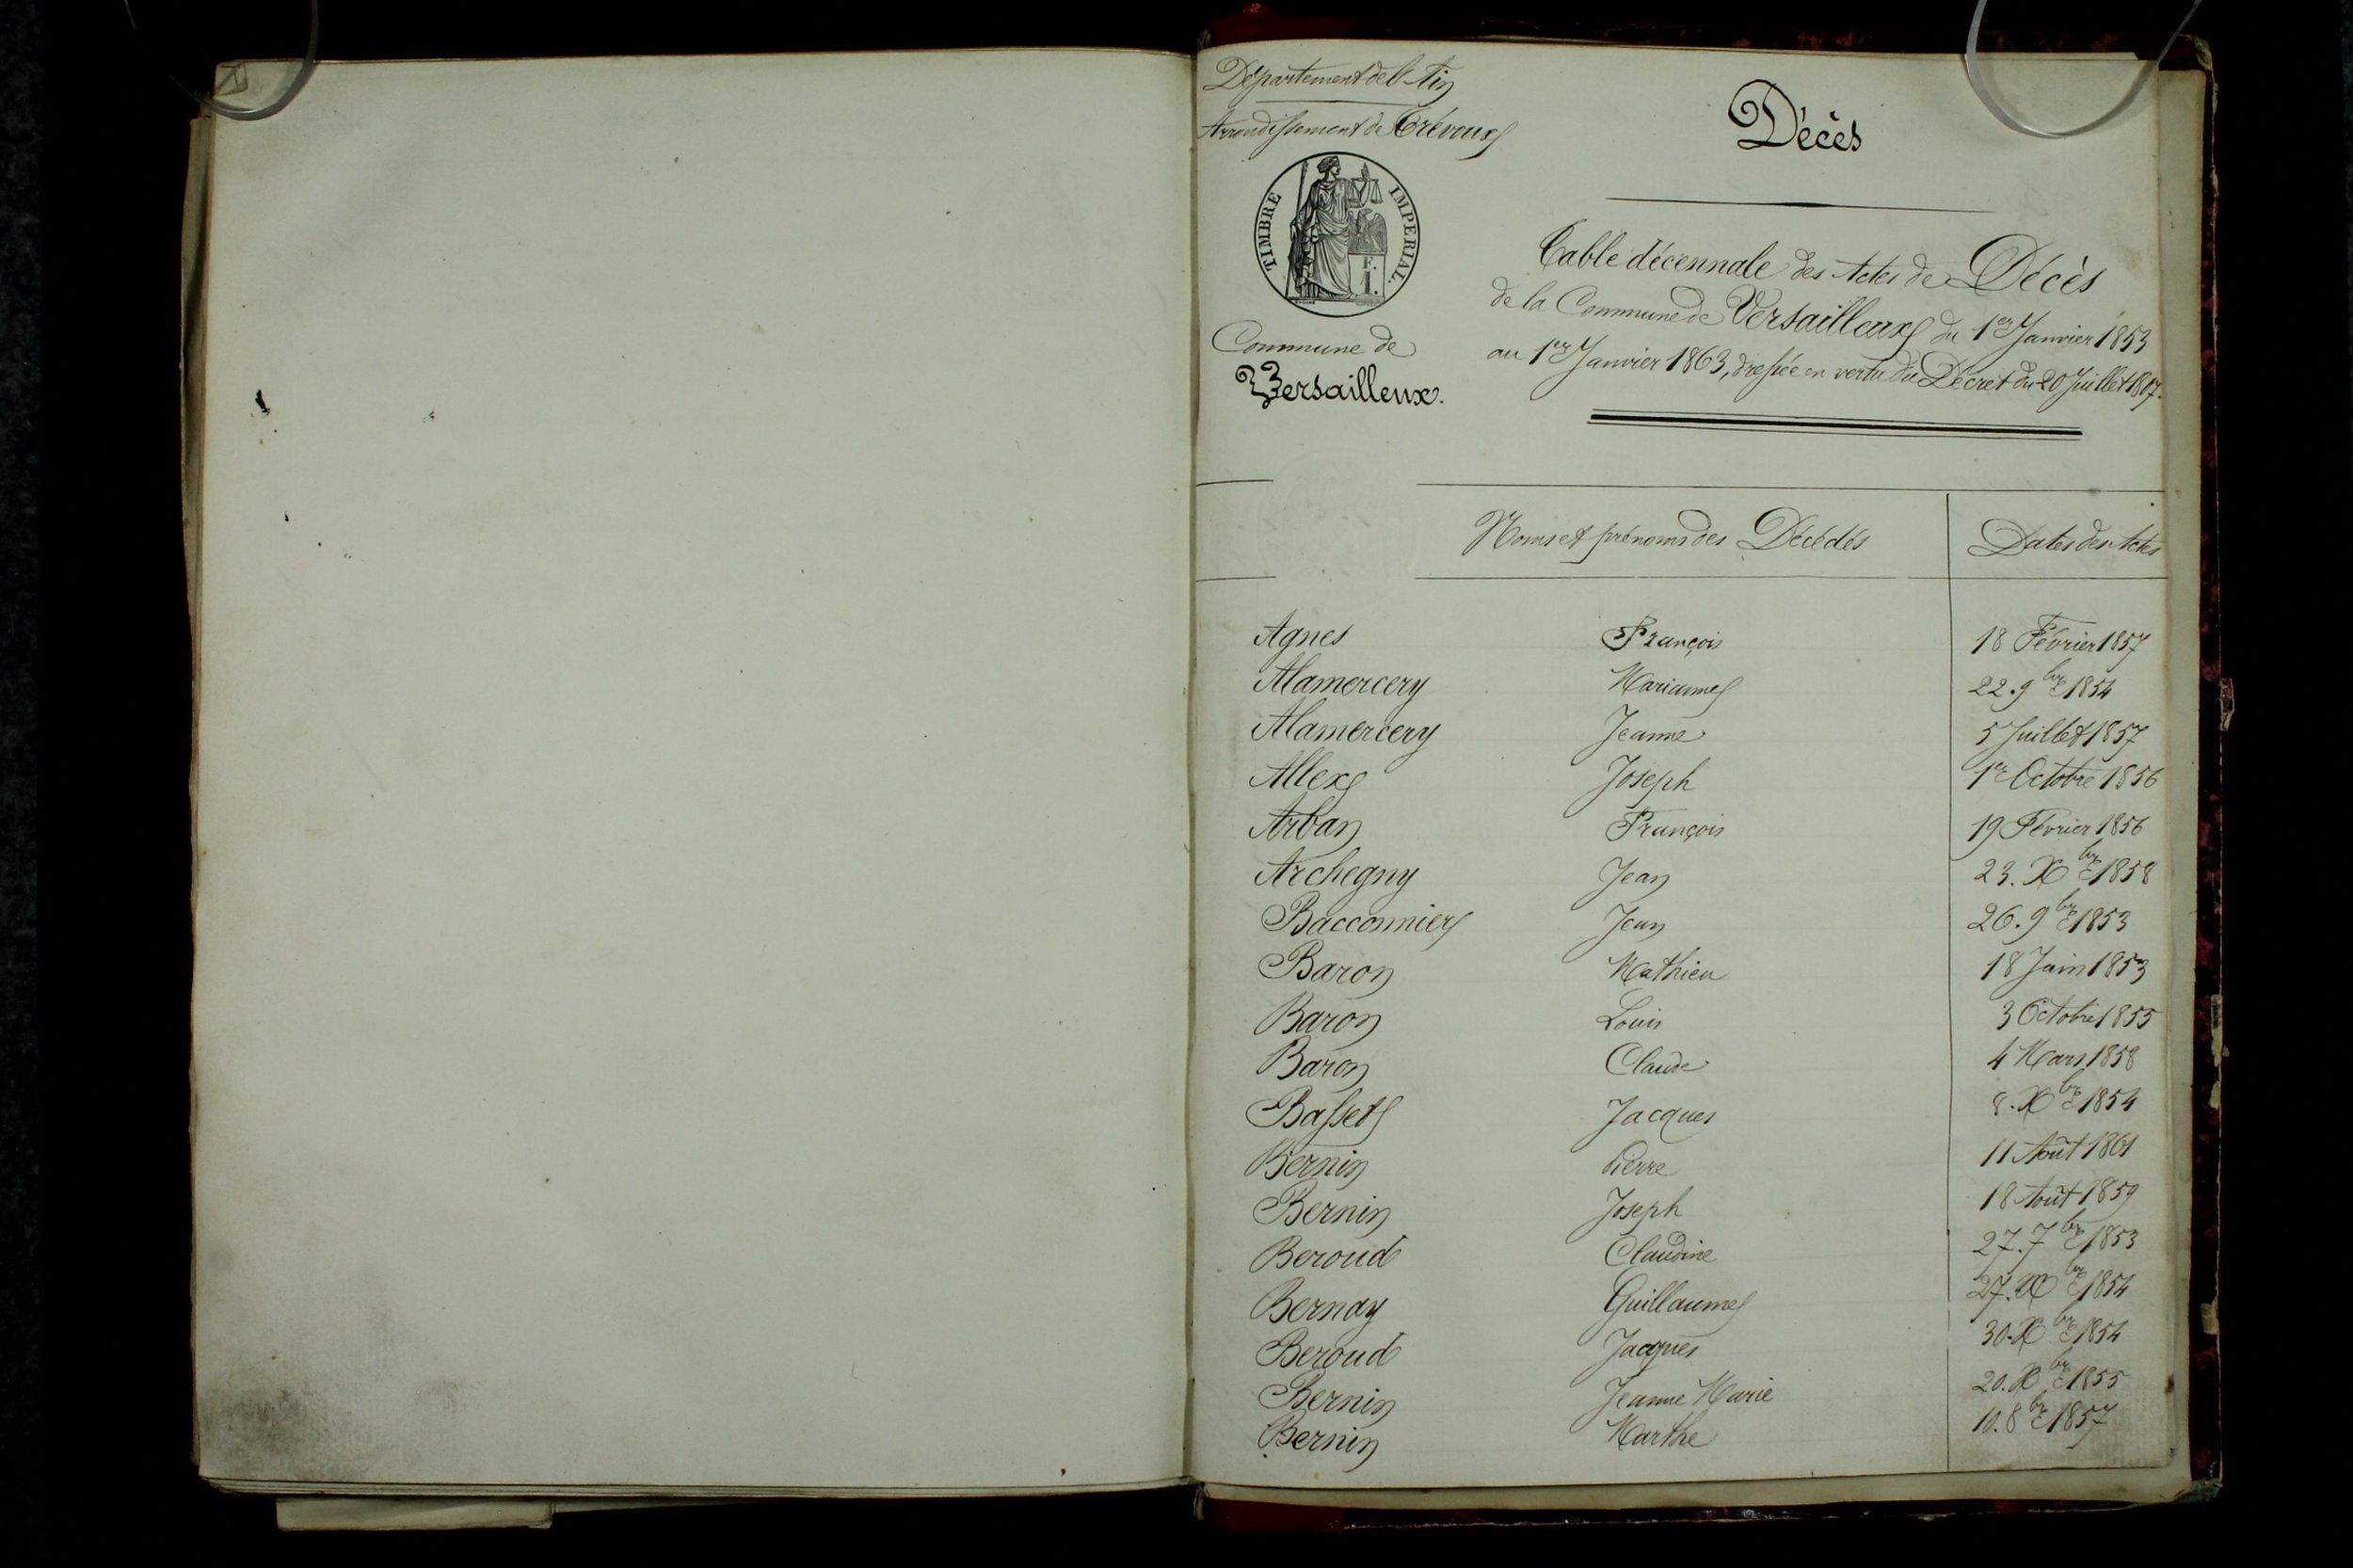 Département de l'Ain
Arrondissement de Trévoux
TIMBRE IMPERIAL.
F.
1.
Commune de
Versailleux.
Décès
Table décennale des Actes de Décès
de la Commune de Versailleux du 1er Janvier 1853
au 1er Janvier 1863, dressée en vertu du Décret du 20 Juillet 1807.
Noms et prénoms des Décédés Dates des Actes
Agnes François 18 Février 1857
Alamercery Marianne 22. 9bre 1854
Alamercery Jeanne 5 Juillet 1857
Allex Joseph 1er Octobre 1856
Arban François 19 Février 1856
Archegny Jean 23. Xbre 1858
Bacconnier Jean 26. 9bre 1853
Baron Mathieu 18 Juin 1853
Baron Louis 3 Octobre 1855
Baron Claude 4 Mars 1858
Basset Jacques 8. Xbre 1854
Bernin Pierre 11 Août 1861
Bernin Joseph 18 Août 1859
Beroud Claudine 27. 7bre 1853
Bernay Guillaume 27. Xbre 1854
Beroud Jacques 30. Xbre 1854
Bernin Jeanne Marie 20. Xbre 1855
Bernin Marthe 10. 8bre 1857